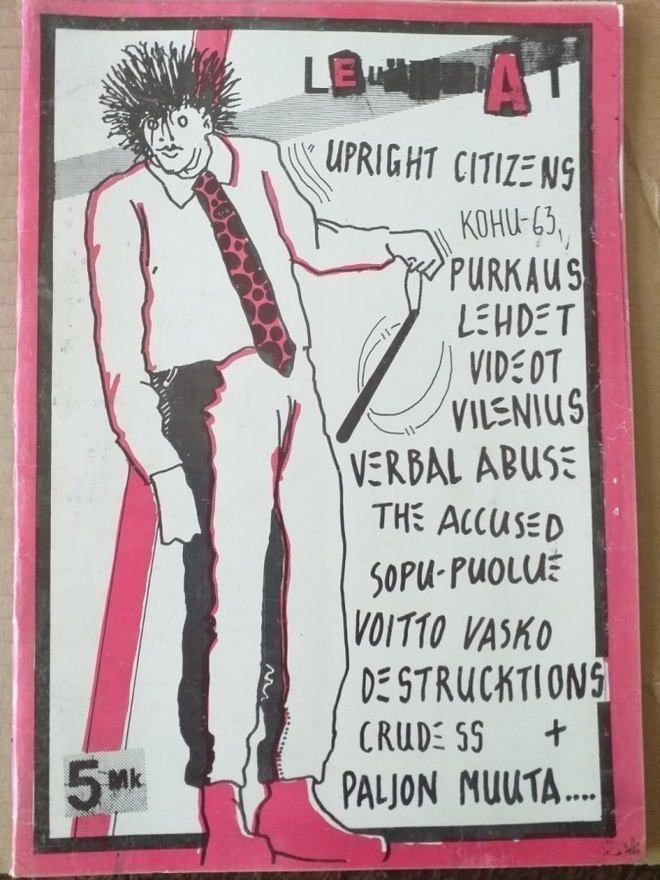 UPRIGHT CITIZENS
KOHU-63,
PURKAUS
LEHDET
VIDEOT
VILENIUS
VERBAL ABUSE
THE ACCUSED
SOPU-PUOLUE
VOITTO VASKO
DESTRUCKTIONS
CRUDE SS +
PALJON MUUTA....
5 MK